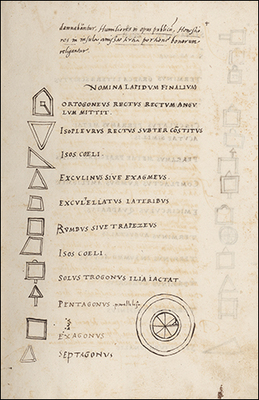 damnabantur, Humiliores in opus publicū, Honestio
res in insulas amissa tertia parte bonorum
religentur.
NOMINA LAPIDUM FINALIUM
ORTOGONEUS RECTUS RECTUM ANGU
LUM MITTIT.
ISOPLEURUS RECTUS SUBTER CŌSTITUTUS
ISOS COELI.
EXCULINUS SIVE EXAGMEUS
EXCUTELLATUS LATERIBUS
RUMBUS SIVE TRAPEZEUS
ISOS COELI.
SOLUS TROGONUS ILIA IACTAT
PENTAGONUS
EXAGONUS
SEPTAGONUS